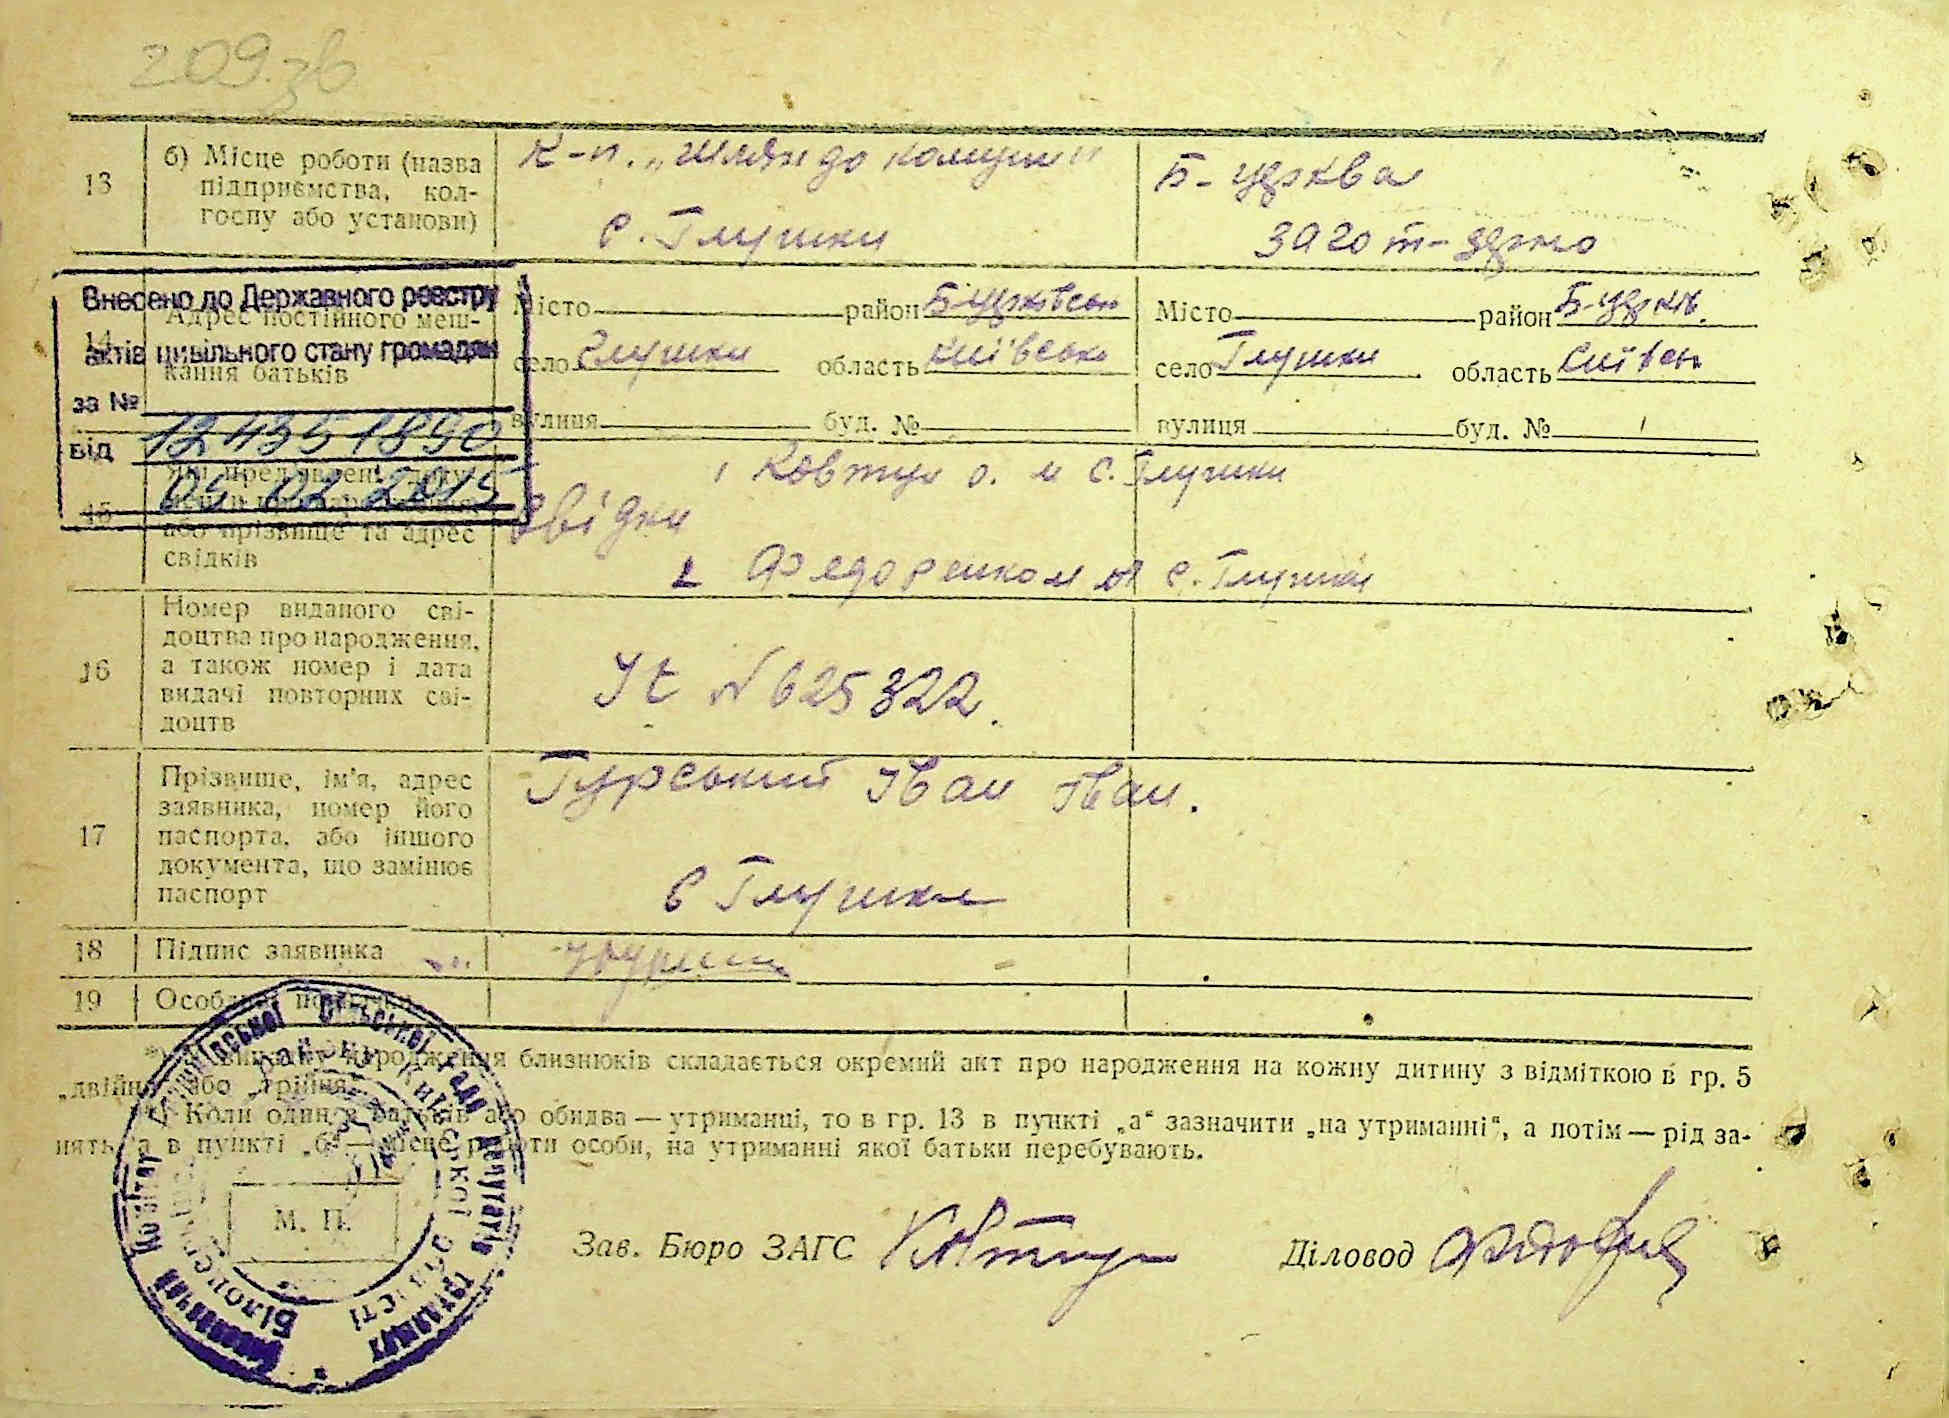 209 зв
13
б) Місце роботи (назва
підприємства, кол-
госпу або установи)
К-п. „Шлях до комуни"
с. Глушки
Б-церква
Заготзерно
Внесено до Державного реєстру
актів цивільного стану громадян
за № 12435 1890
від 05 02 2015
14
Адрес постійного меш-
кання батьків
Місто район Б-церківськ
село Глушки область Київська
вулиця буд. №
Місто район Б-церків.
село Глушки область Київськ
вулиця буд. №
15
або прізвище та адрес
свідків
Свідки
1 Ковтун О. М с. Глушки
2 Федоренко М с. Глушки
16
Номер виданого сві-
доцтва про народження,
а також номер і дата
видачі повторних сві-
доцтв
N 625322.
17
Прізвище, ім'я, адрес
заявника, номер його
паспорта, або іншого
документа, що замінює
паспорт
Гурський Іван Іван.
с Глушки
18
Підпис заявника
19
Особливі
народження близнюків складається окремий акт про народження на кожну дитину з відміткою в гр. 5
„двійня" або „трійня".
Коли один з батьків або обидва — утриманці, то в гр. 13 в пункті „а" зазначити „на утриманні", а потім — рід за-
нять, а в пункті „б" — місце роботи особи, на утриманні якої батьки перебувають.
М. П.
Зав. Бюро ЗАГС Ковтун
Діловод
Виконавчий Комітет Сільської Ради Депутатів Трудящих
Білоцерківського району Київської області